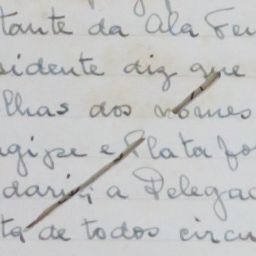 tante da Ala Fem
sidente diz que
lhas dos nomes
agipe e Plata for
daria, a Delegac
ta, de todos circu